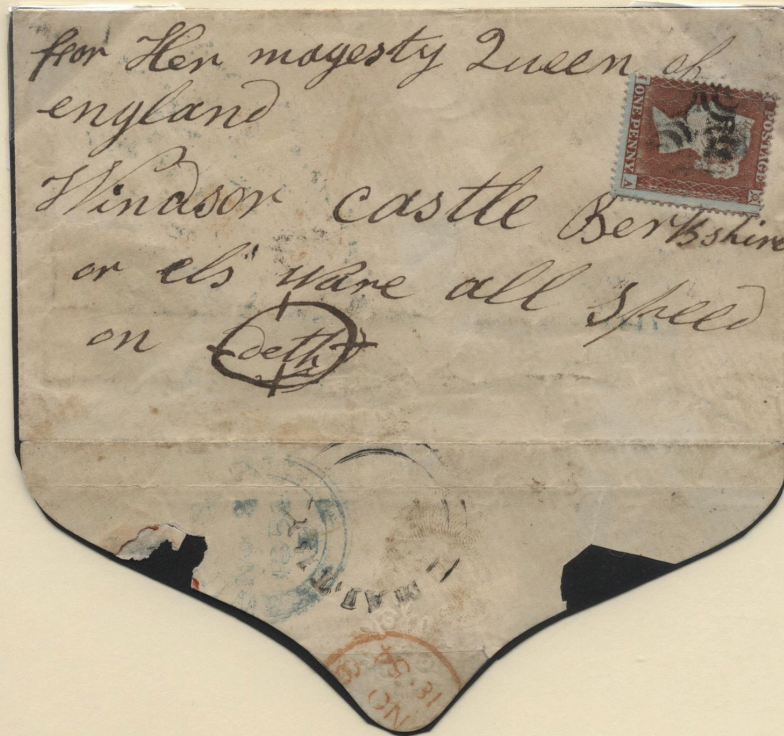 for Her magesty Queen of
england
Windsor castle Berkshire
or els ware all speed
on deth
POSTAGE
ONE PENNY
A